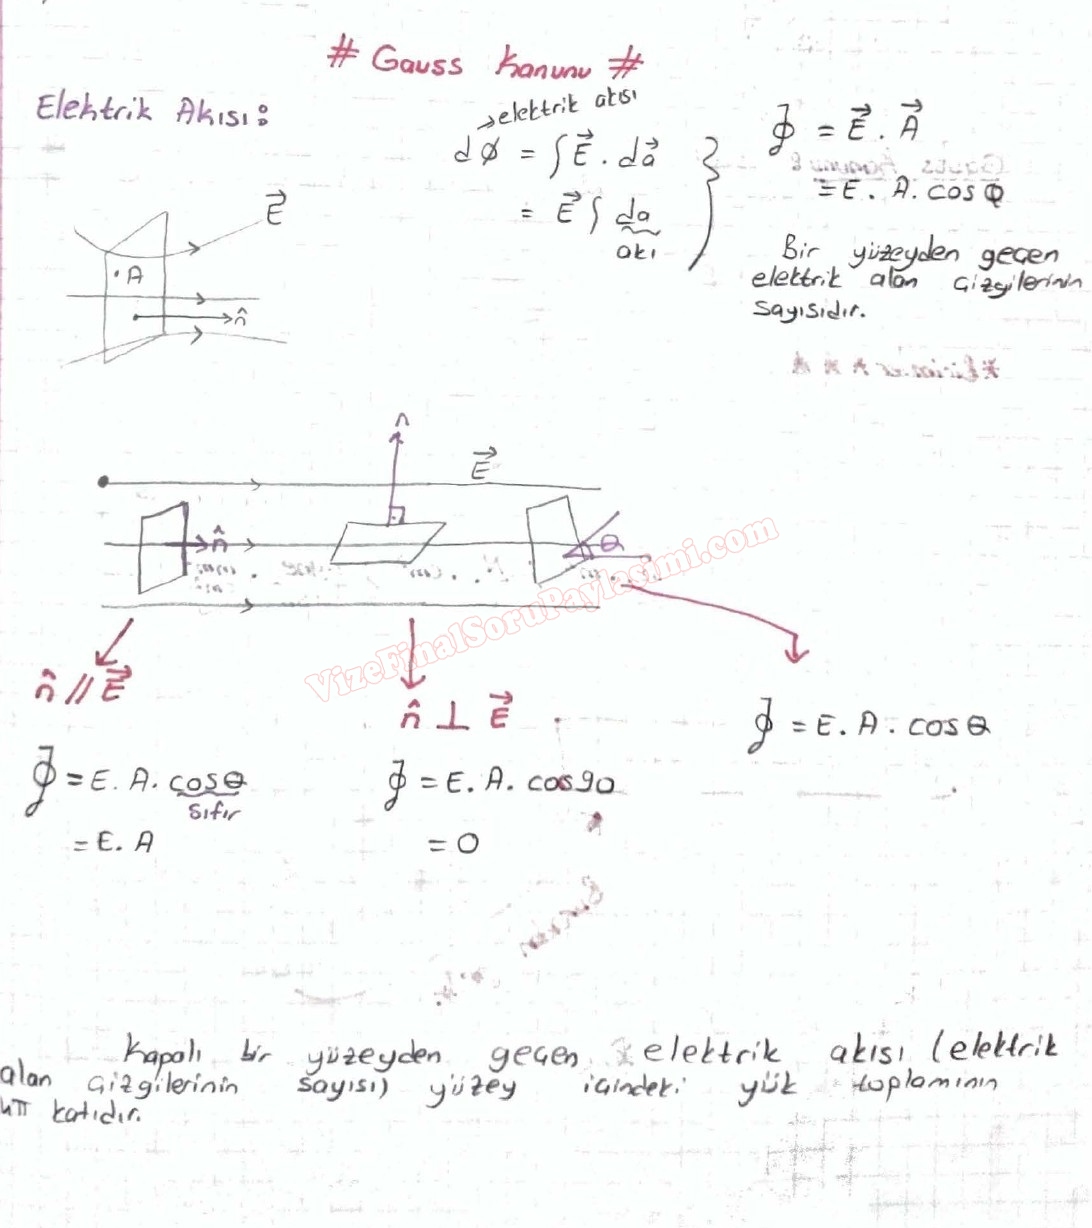 # Gauss Kanunu #
Elektrik Akısı:
→ elektrik akısı
dΦ = ∫E⃗ . da⃗
= E⃗ ∫ da
akı
Φ = E⃗ . A⃗
= E. A. cos Φ
Bir yüzeyden geçen
elektrik alan çizgilerinin
sayısıdır.
E⃗
A
n̂
n
E⃗
n̂
θ
VizeFinalSoruPaylasimi.com
n̂ // E⃗
n̂ ⊥ E⃗
Φ = E. A. cosθ
Φ = E. A. cosθ
sıfır
= E. A
Φ = E. A. cos90
= 0
Kapalı bir yüzeyden geçen elektrik akısı (elektrik
alan çizgilerinin sayısı) yüzey içindeki yük toplamının
4π katıdır.